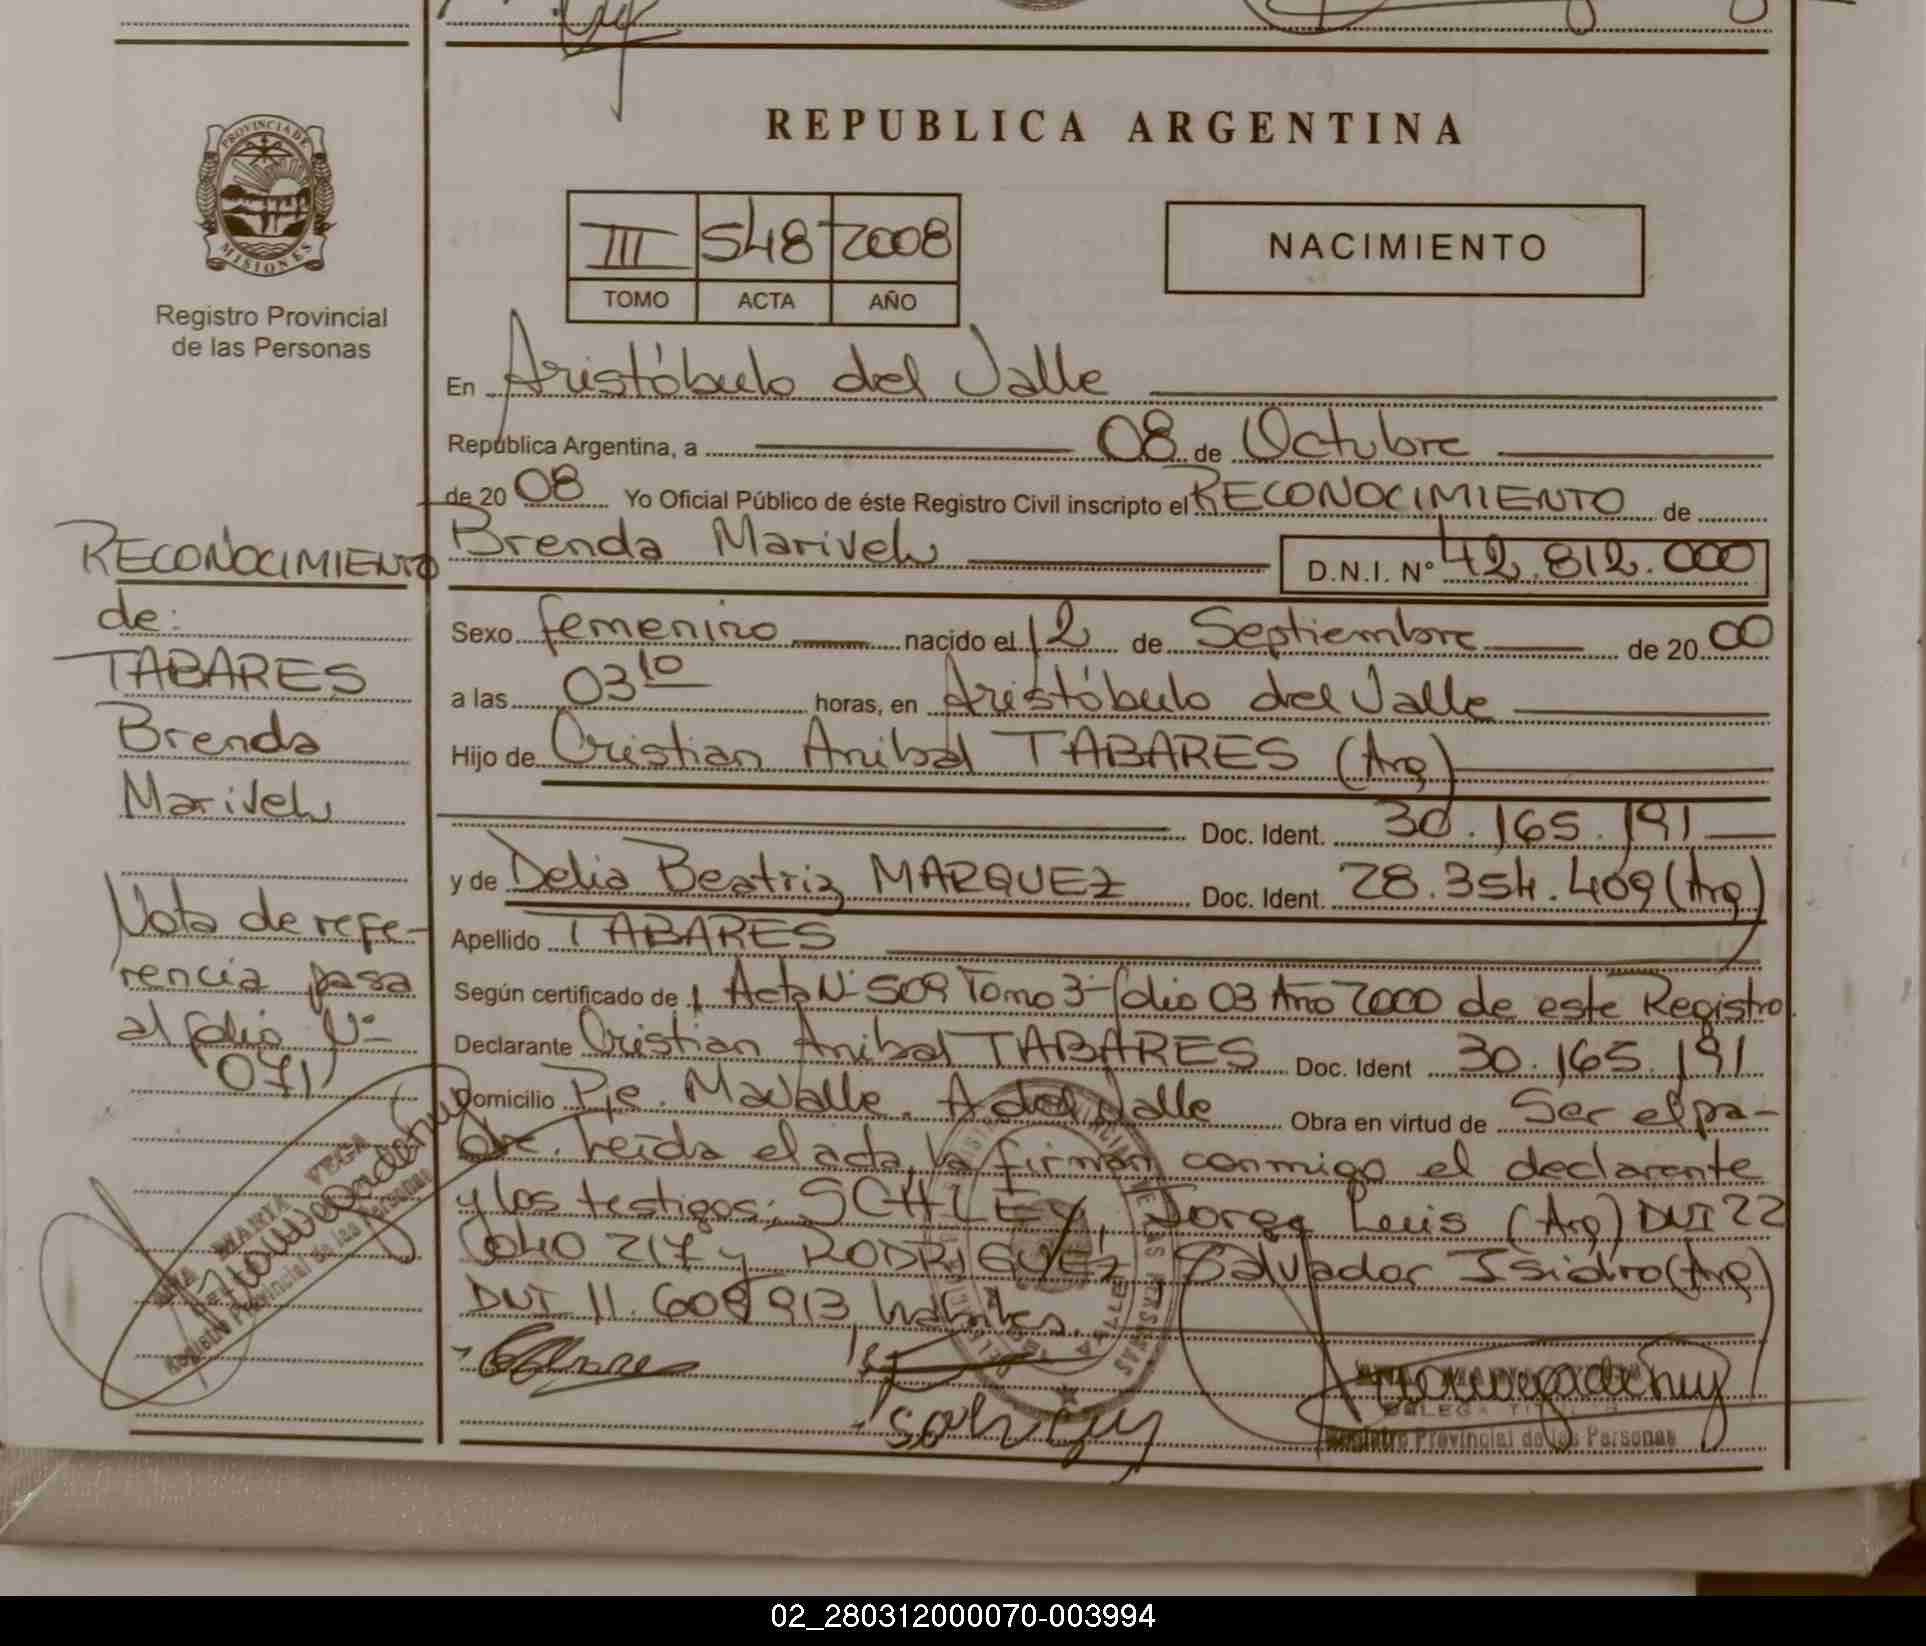 REPUBLICA ARGENTINA
PROVINCIA DE MISIONES
Registro Provincial
de las Personas
III 548 2008
TOMO ACTA AÑO
NACIMIENTO
En Aristóbulo del Valle
República Argentina, a 08 de Octubre
de 2008 Yo Oficial Público de éste Registro Civil inscripto el RECONOCIMIENTO de
Brenda Marivel D.N.I. N° 42.812.000
Sexo femenino nacido el 12 de Septiembre de 2000
a las 03 10 horas, en Aristóbulo del Valle
Hijo de Cristian Anibal TABARES (Arg)
Doc. Ident. 30.165.191
y de Delia Beatriz MARQUEZ Doc. Ident. 28.354.409 (Arg)
Apellido TABARES
Según certificado de Acta Nº 509 Tomo 3º folio 03 Año 2000 de este Registro.
Declarante Cristian Anibal TABARES Doc. Ident 30.165.191
Domicilio Pje. Mavalle. A del Valle Obra en virtud de Ser el pa-
dre. Leída el acta, la firman conmigo el declarante
y los testigos: SCHLEY, Jorge Luis (Arg) DNI 22
040 217 y RODRIGUEZ, Salvador Isidro (Arg)
DNI 11.608 913, hábiles.
Registro Provincial de las Personas
RECONOCIMIENTO
de:
TABARES
Brenda
Marivel
Nota de refe-
rencia pasa
al folio Nº
071
MARTA VEGA
Registro Provincial de las Personas
02_280312000070-003994